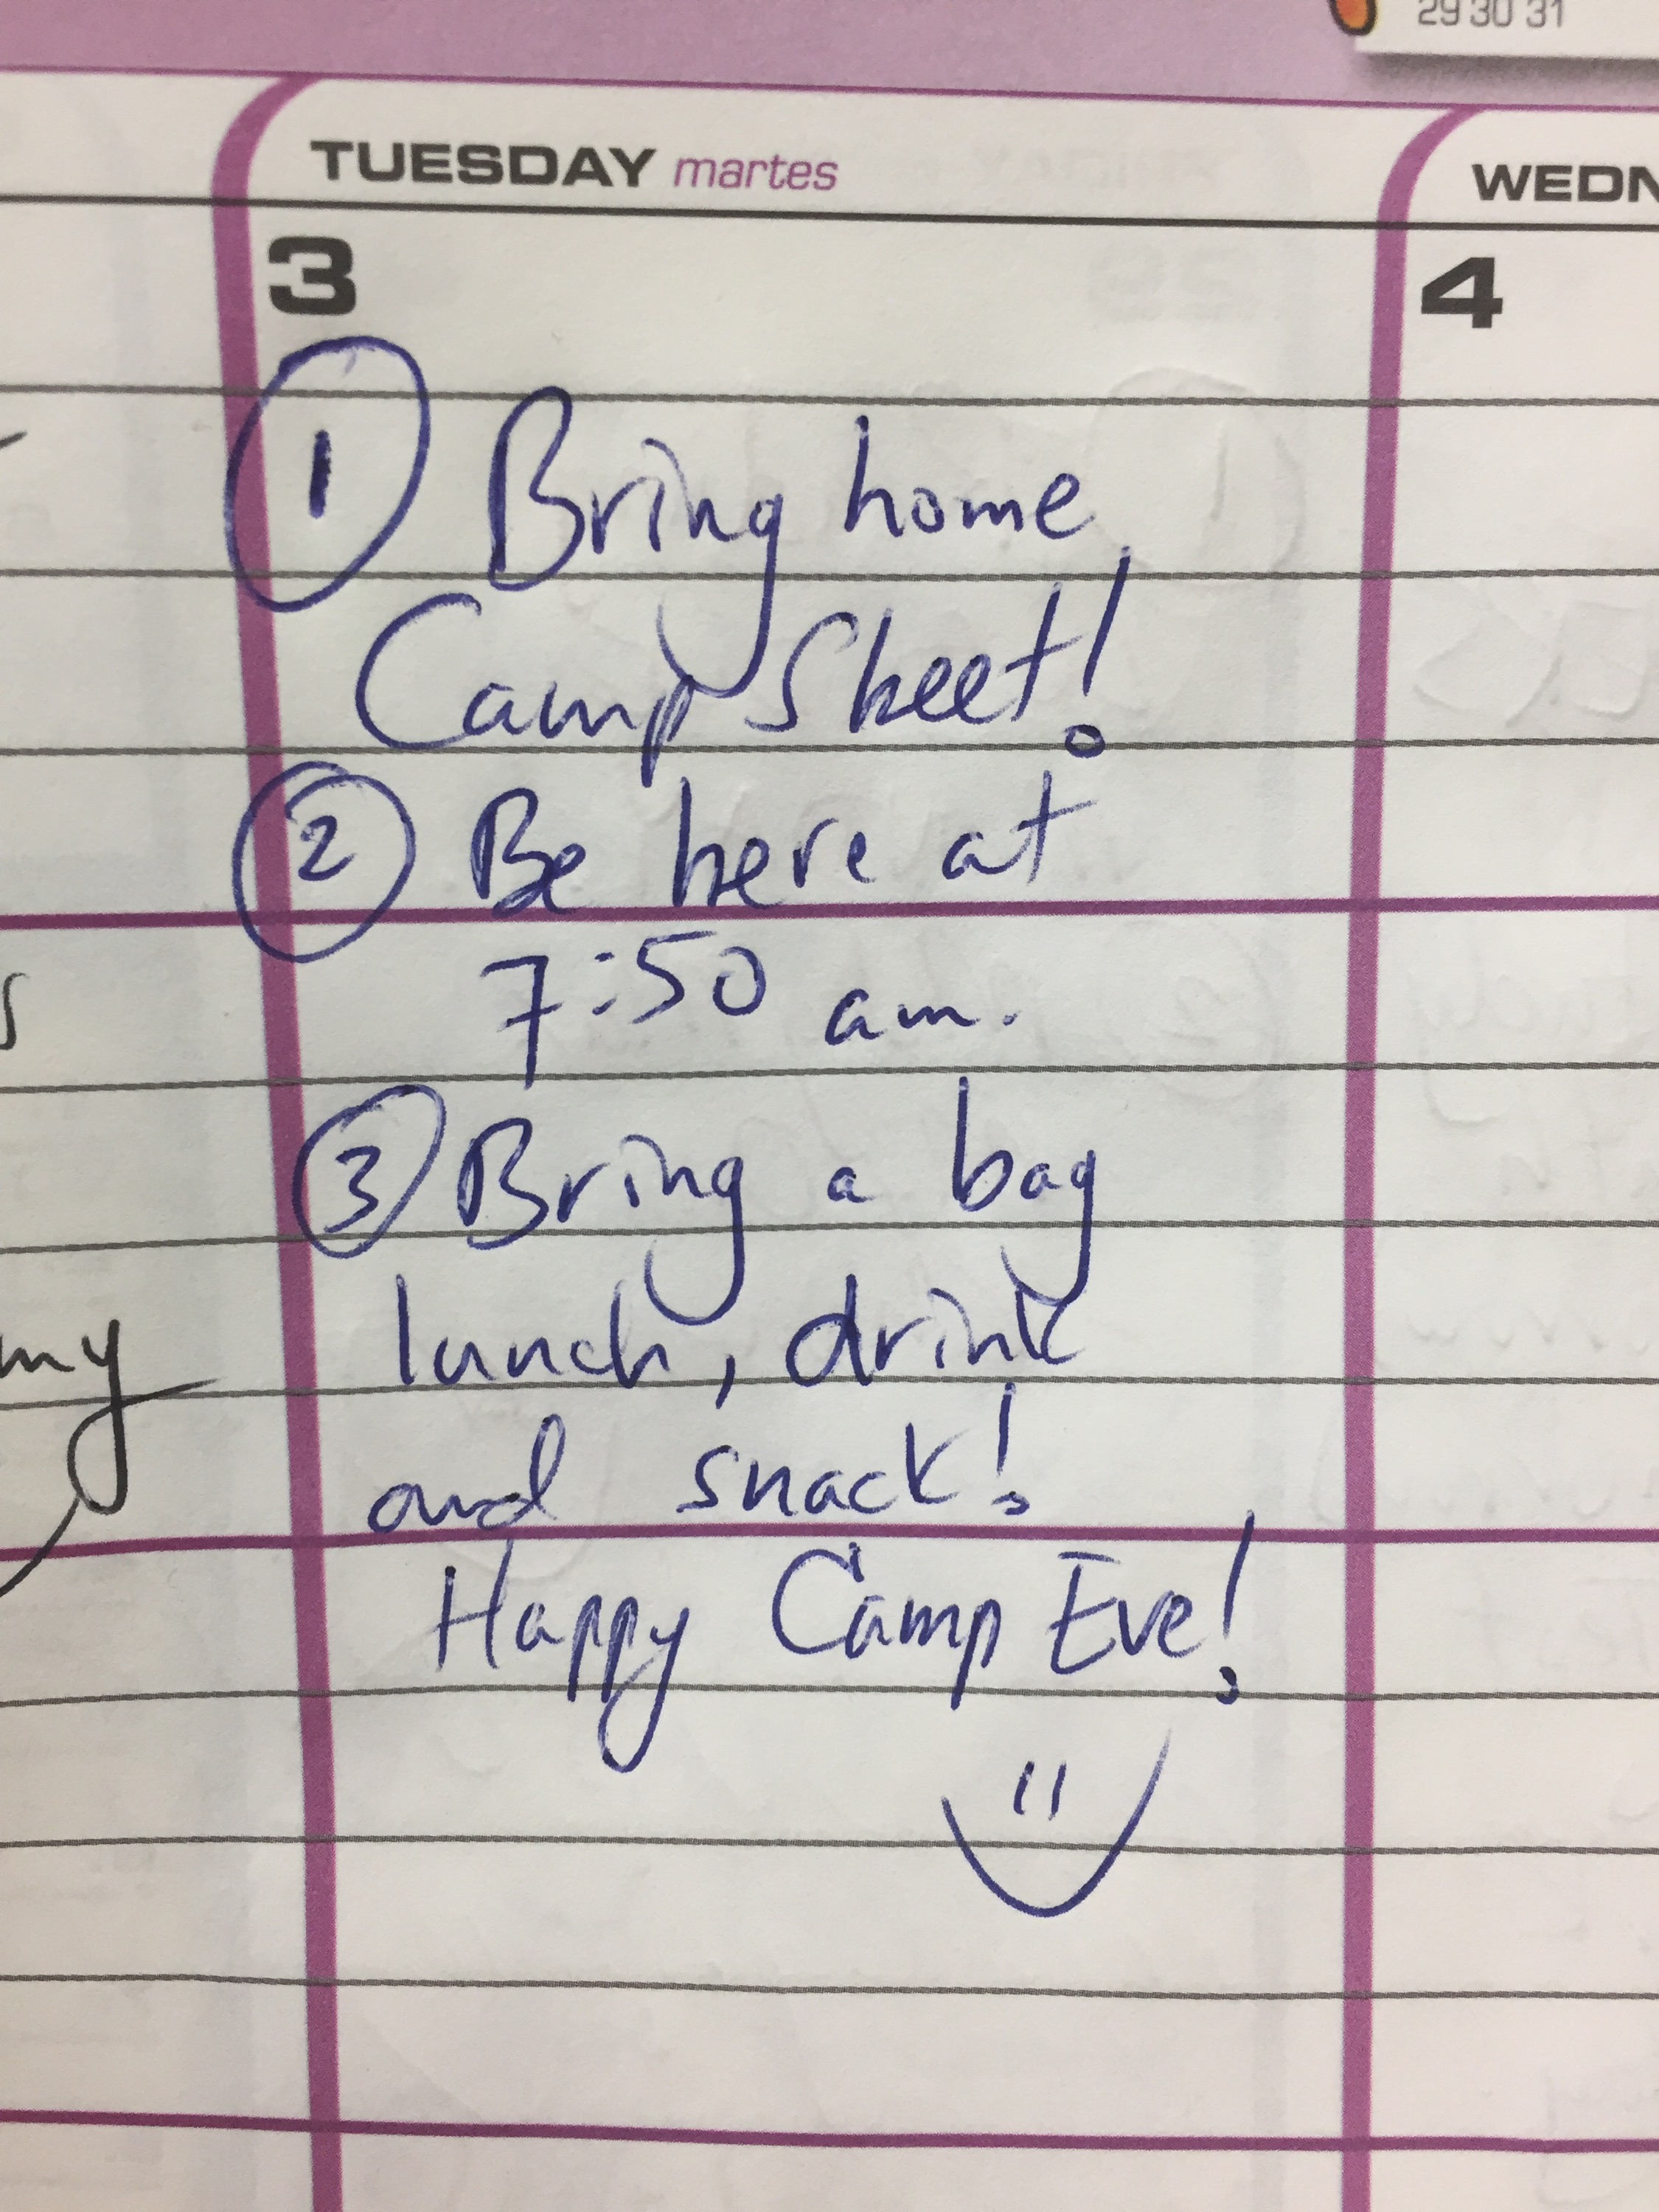 29 30 31
TUESDAY martes
WEDN
3
4
① Bring home
Camp Sheet!
② Be here at
7:50 am.
③ Bring a bag
lunch, drink
and snack!
my
Happy Camp Eve!